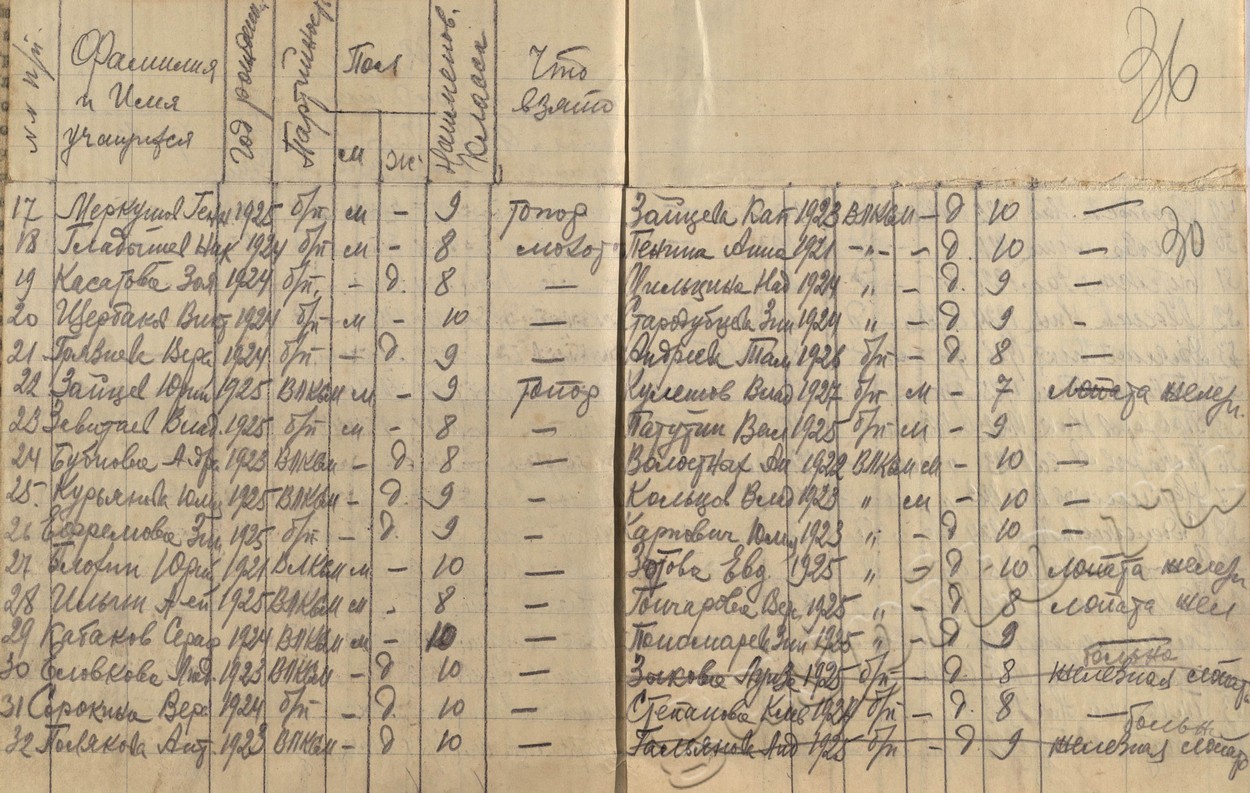 №№ п/п. Фамилия и Имя учащихся Год рождени. Партийност Пол м ж. Наименов. класса Что взято 36
17 Меркулов Генн 1925 б/п м - 9 топор
18 Гладышев Ник 1924 б/п м - 8 молот
19 Касатова Зоя 1924 б/п. - д. 8 —
20 Щербаков Викт 1924 б/п м - 10 —
21 Вера 1924 б/п - д. 9 —
22 Зайцев Юрий 1925 ВЛКСМ м - 9 топор
23 Влад. 1925 б/п м - 8 —
24 Бубнова 1923 ВЛКСМ - д. 8 —
25 Курьянова Юли 1925 ВЛКСМ - д. 9 —
26 Ефремова Зин 1925 б/п - д. 9 —
27 Юрий 1921 ВЛКСМ м - 10 —
28 Ильин 1925 ВЛКСМ м - 8 —
29 Кабаков Сераф 1924 ВЛКСМ м - 10 —
30 Еловкова 1923 ВЛКСМ - д 10 —
31 Сорокина Вера 1924 б/п - д. 10 —
32 Полякова Ант 1923 ВЛКСМ - д 10 —
Зайцева Кап 1923 ВЛКСМ - д 10 —
30
Пенина Анна 1921 -"- - д. 10 —
Над 1924 " - д. 9 —
Старозубцева Зин 1924 " - д. 9 -
Там 1926 б/п - д. 8 —
Кулешов Влад 1927 б/п м - 7 Лопата желез.
Патутин 1925 б/п м - 9 -
1922 ВЛКСМ м - 10 —
Кольцов Влад 1923 " м - 10 —
Карпович Юлия 1923 " - д 10 —
Зотова Евд. 1925 " - д - 10 лопата желез
Гончарова Вер. 1925 " - д 8 лопата жел
Пономарева Зин 1925 " - д. 9
больна
Зыкова 1925 б/п - д. 8 железная лопат
Степанова 1924 б/п - д. 8 —
больн
1925 б/п - д 9 железная лопат